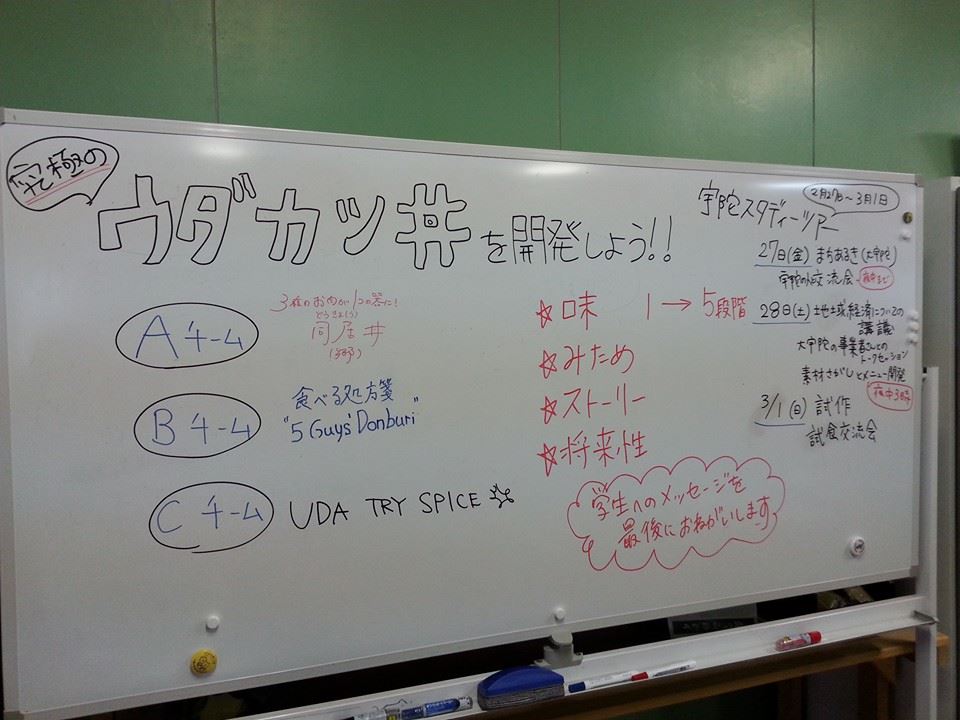 究極の
ウダカツ丼を開発しよう!!
Aチーム
3種のおかずが1つの器に!
どうきょ
同居丼
Bチーム
食べる処方箋
"5 Guy's Donburi"
Cチーム
UDA TRY SPICE
☆味 1→5段階
☆みため
☆ストーリー
☆将来性
学生へのメッセージを
最後におねがいします
2月27日〜3月1日
宇陀スタディーツアー
27日(金) まちあるき(大宇陀)
宇陀の 交流会
夜中まで
28日(土) 土地土域、経済についての
講義
大宇陀の事業者さんとの
トークセッション
素材さがしとメニュー開発
夜中3時
3/1(日) 試作
試食交流会